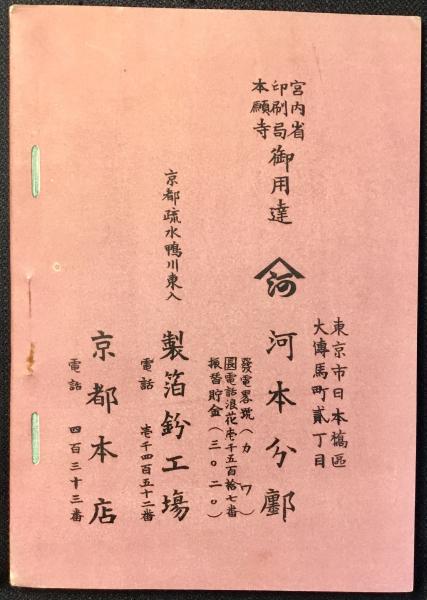 宮内省
印刷局
本願寺
御用達
東京市日本橋區
大傳馬町貳丁目
河
河本分鄽
發電畧號(カワ)
圓電話浪花壱千五百拾七番
振替貯金(三〇二〇)
京都疏水鴨川東入
製箔鈖工場
電話 壱千四百五十二番
京都本店
電話 四百三十三番